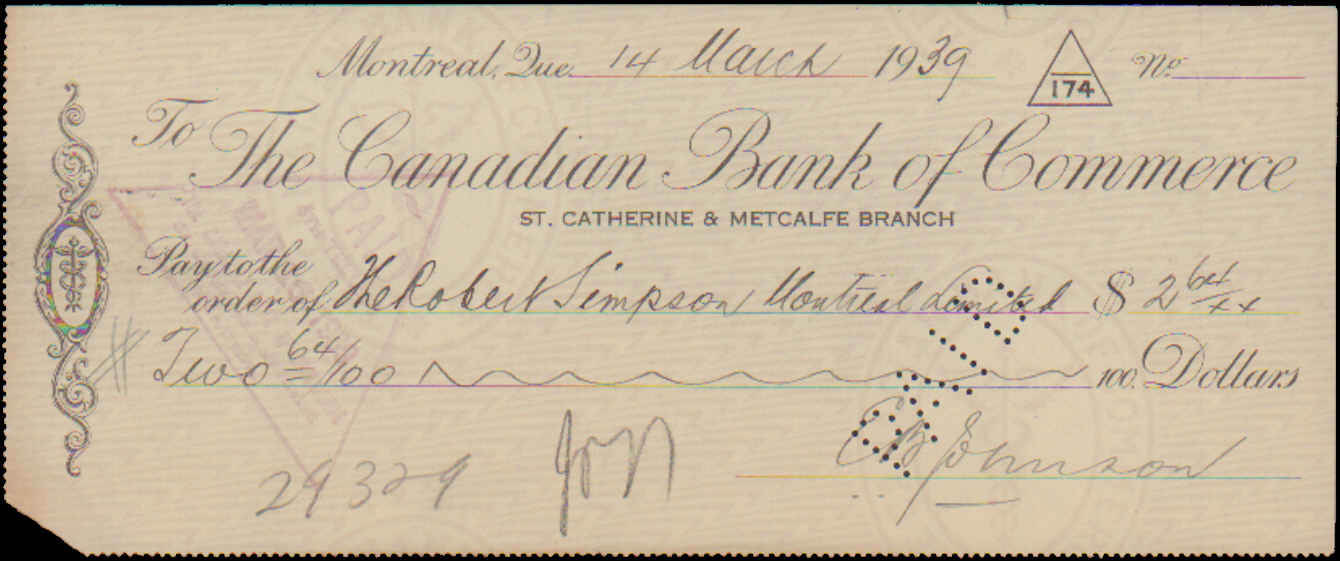 Montreal, Que. 14 March 1939 174 No.
To The Canadian Bank of Commerce
ST. CATHERINE & METCALFE BRANCH
Pay to the
order of The Robert Simpson Montreal Limited $ 2 64/xx
Two 64/100 100 Dollars
29329
CB Johnson
PAID